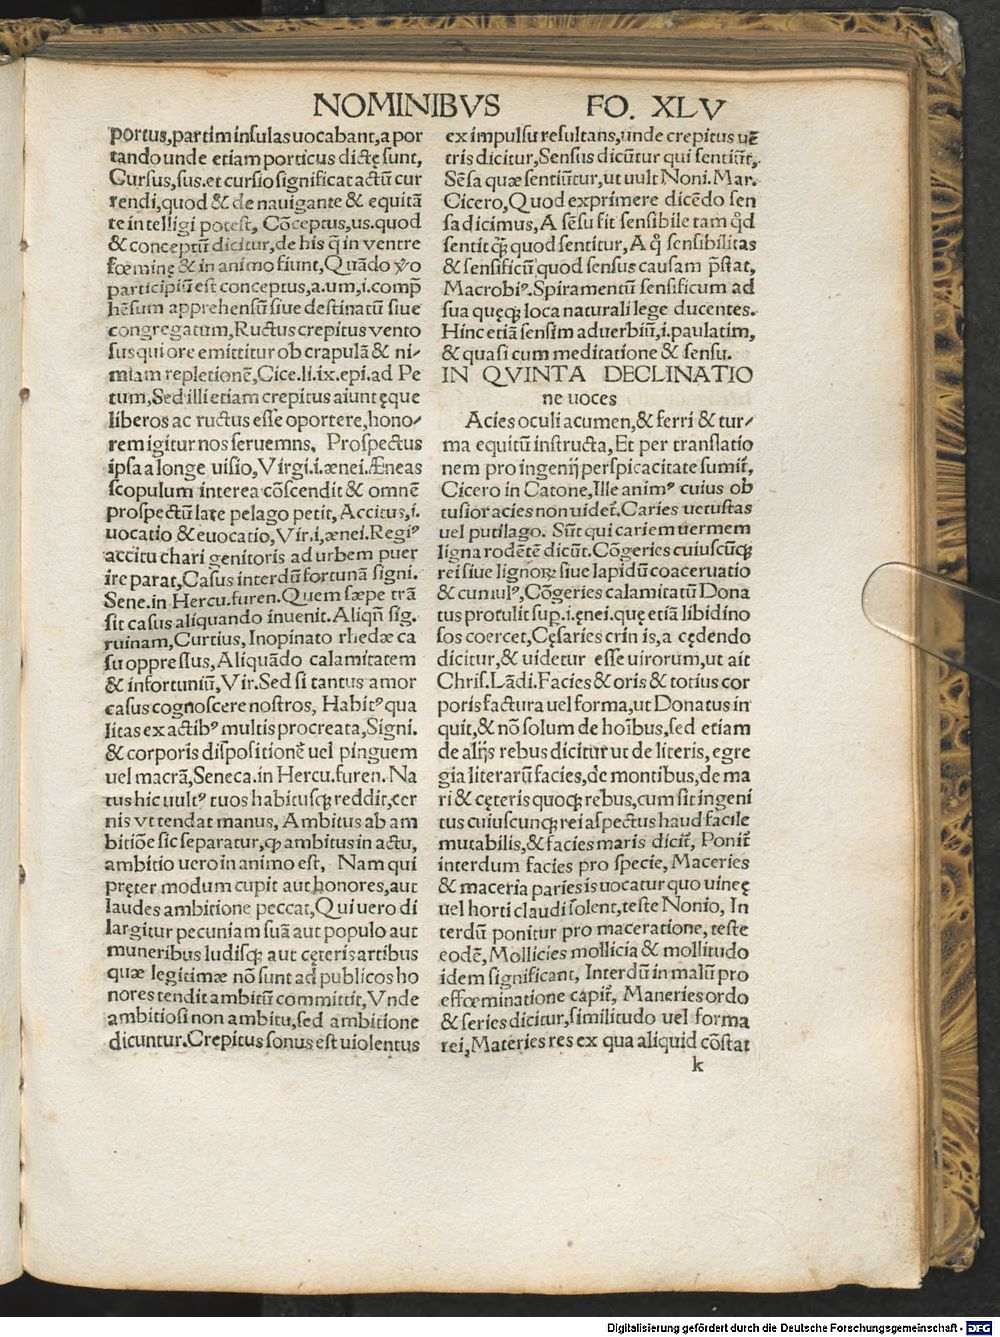 NOMINIBVS FO. XLV
portus,partim insulas uocabant,a por
tando unde etiam porticus dictę sunt,
Cursus,sus.et cursio significat actũ cur
rendi,quod & de nauigante & equitã
te intelligi potest, Cõceptus,us.quod
& conceptũ dicitur,de his q̃ in ventre
fœminę & in animo fiunt,Quãdo ỽo
participiũ est conceptus,a.um,i.comp̃
hẽsum apprehensũ siue destinatũ siue
congregatum,Ructus crepitus vento
sus qui ore emittitur ob crapulã & ni⸗
miam repletionẽ,Cice.li.ix.epi.ad Pe
tum,Sed illi etiam crepitus aiunt ęque
liberos ac ructus esse oportere,hono⸗
rem igitur nos seruemns, Prospectus
ipsa a longe uisio,Virgi.i.ænei.Æneas
scopulum interea cõscendit & omnẽ
prospectũ late pelago petit, Accitus,i.
uocatio & euocatio,Vir.i,ænei.Regiꝰ
accitu chari genitoris ad urbem puer
ire parat,Casus interdũ fortunã signi.
Sene.in Hercu.furen.Quem sæpe trã
sit casus aliquando inuenit.Aliqñ sig.
ruinam,Curtius, Inopinato rhedæ ca
su oppressus,Aliquãdo calamitatem
& infortuniũ,Vir.Sed si tantus amor
casus cognoscere nostros, Habitꝰ qua
litas ex actibꝰ multis procreata,Signi.
& corporis dispositionẽ uel pinguem
uel macrã,Seneca.in Hercu.furen. Na
tus hic uultꝰ tuos habitusq̃ reddit,cer
nis vt tendat manus, Ambitus ab am
bitiõe sic separatur,ꝙ ambitus in actu,
ambitio uero in animo est, Nam qui
pręter modum cupit aut honores,aut
laudes ambitione peccat,Qui uero di
largitur pecuniam suã aut populo aut
muneribus ludisq̃ aut cęteris artibus
quæ legitimæ nõ sunt ad publicos ho
nores tendit ambitũ committit,Vnde
ambitiosi non ambitu,sed ambitione
dicuntur.Crepitus sonus est uiolentus
ex impulsu resultans,unde crepitus uẽ
tris dicitur,Sensus dicũtur qui sentiũt,
Sẽsa quæ sentiũtur,ut uult Noni.Mar.
Cicero,Quod exprimere dicẽdo sen
sa dicimus,A sẽsu fit sensibile tam q̊d
sentit q̃ quod sentitur,A q̊ sensibilitas
& sensificũ quod sensus causam p̃stat,
Macrobiꝰ.Spiramentũ sensificum ad
sua quęq̃ loca naturali lege ducentes.
Hinc etiã sensim aduerbiũ,i.paulatim,
& quasi cum meditatione & sensu.
IN QVINTA DECLINATIO
ne uoces
Acies oculi acumen,& ferri & tur⸗
ma equitũ instructa,Et per translatio
nem pro ingenij perspicacitate sumit̃,
Cicero in Catone,Ille animꝰ cuius ob
tusior acies non uidet̃.Caries uetustas
uel putilago. Sũt qui cariem uermem
ligna rodẽtẽ dicũt.Cõgeries cuiuscũq̃
rei siue lignoꝝ siue lapidũ coaceruatio
& cumulꝰ,Cõgeries calamitatũ Dona
tus protulit sup̱.i.ęnei.quę etiã libidino
sos coercet,Cęsaries crinis,a cędendo
dicitur,& uidetur esse uirorum,ut ait
Chris.Lãdi.Facies & oris & totius cor
poris factura uel forma,ut Donatus in
quit,& nõ solum de hoĩbus,sed etiam
de alijs rebus dicitur ut de literis, egre
gia literarũ facies,de montibus,de ma
ri & cęteris quoq̃ rebus,cum sit ingeni
tus cuiuscunq̃ rei aspectus haud facile
mutabilis,& facies maris dicit̃, Ponit̃
interdum facies pro specie, Maceries
& maceria paries is uocatur quo uineę
uel horti claudi solent,teste Nonio, In
terdũ ponitur pro maceratione, teste
eodẽ, Mollicies mollicia & mollitudo
idem significant, Interdũ in malũ pro
effœminatione capit̃, Maneries ordo
& series dicitur,similitudo uel forma
rei,Materies res ex qua aliquid cõstat
k
Digitalisierung gefördert durch die Deutsche Forschungsgemeinschaft - DFG